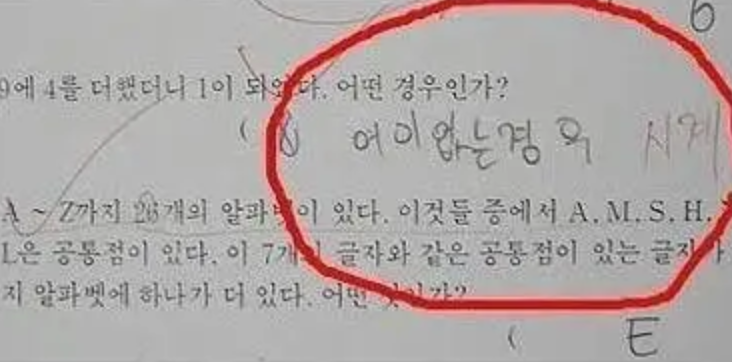 6
9에 4를 더했더니 1이 되었다. 어떤 경우인가?
( 어이없는경우 시계
A ~ Z까지 26개의 알파벳이 있다. 이것들 중에서 A, M, S, H,
L은 공통점이 있다. 이 7개의 글자와 같은 공통점이 있는 글자가
지 알파벳에 하나가 더 있다. 어떤 것인가?
( E